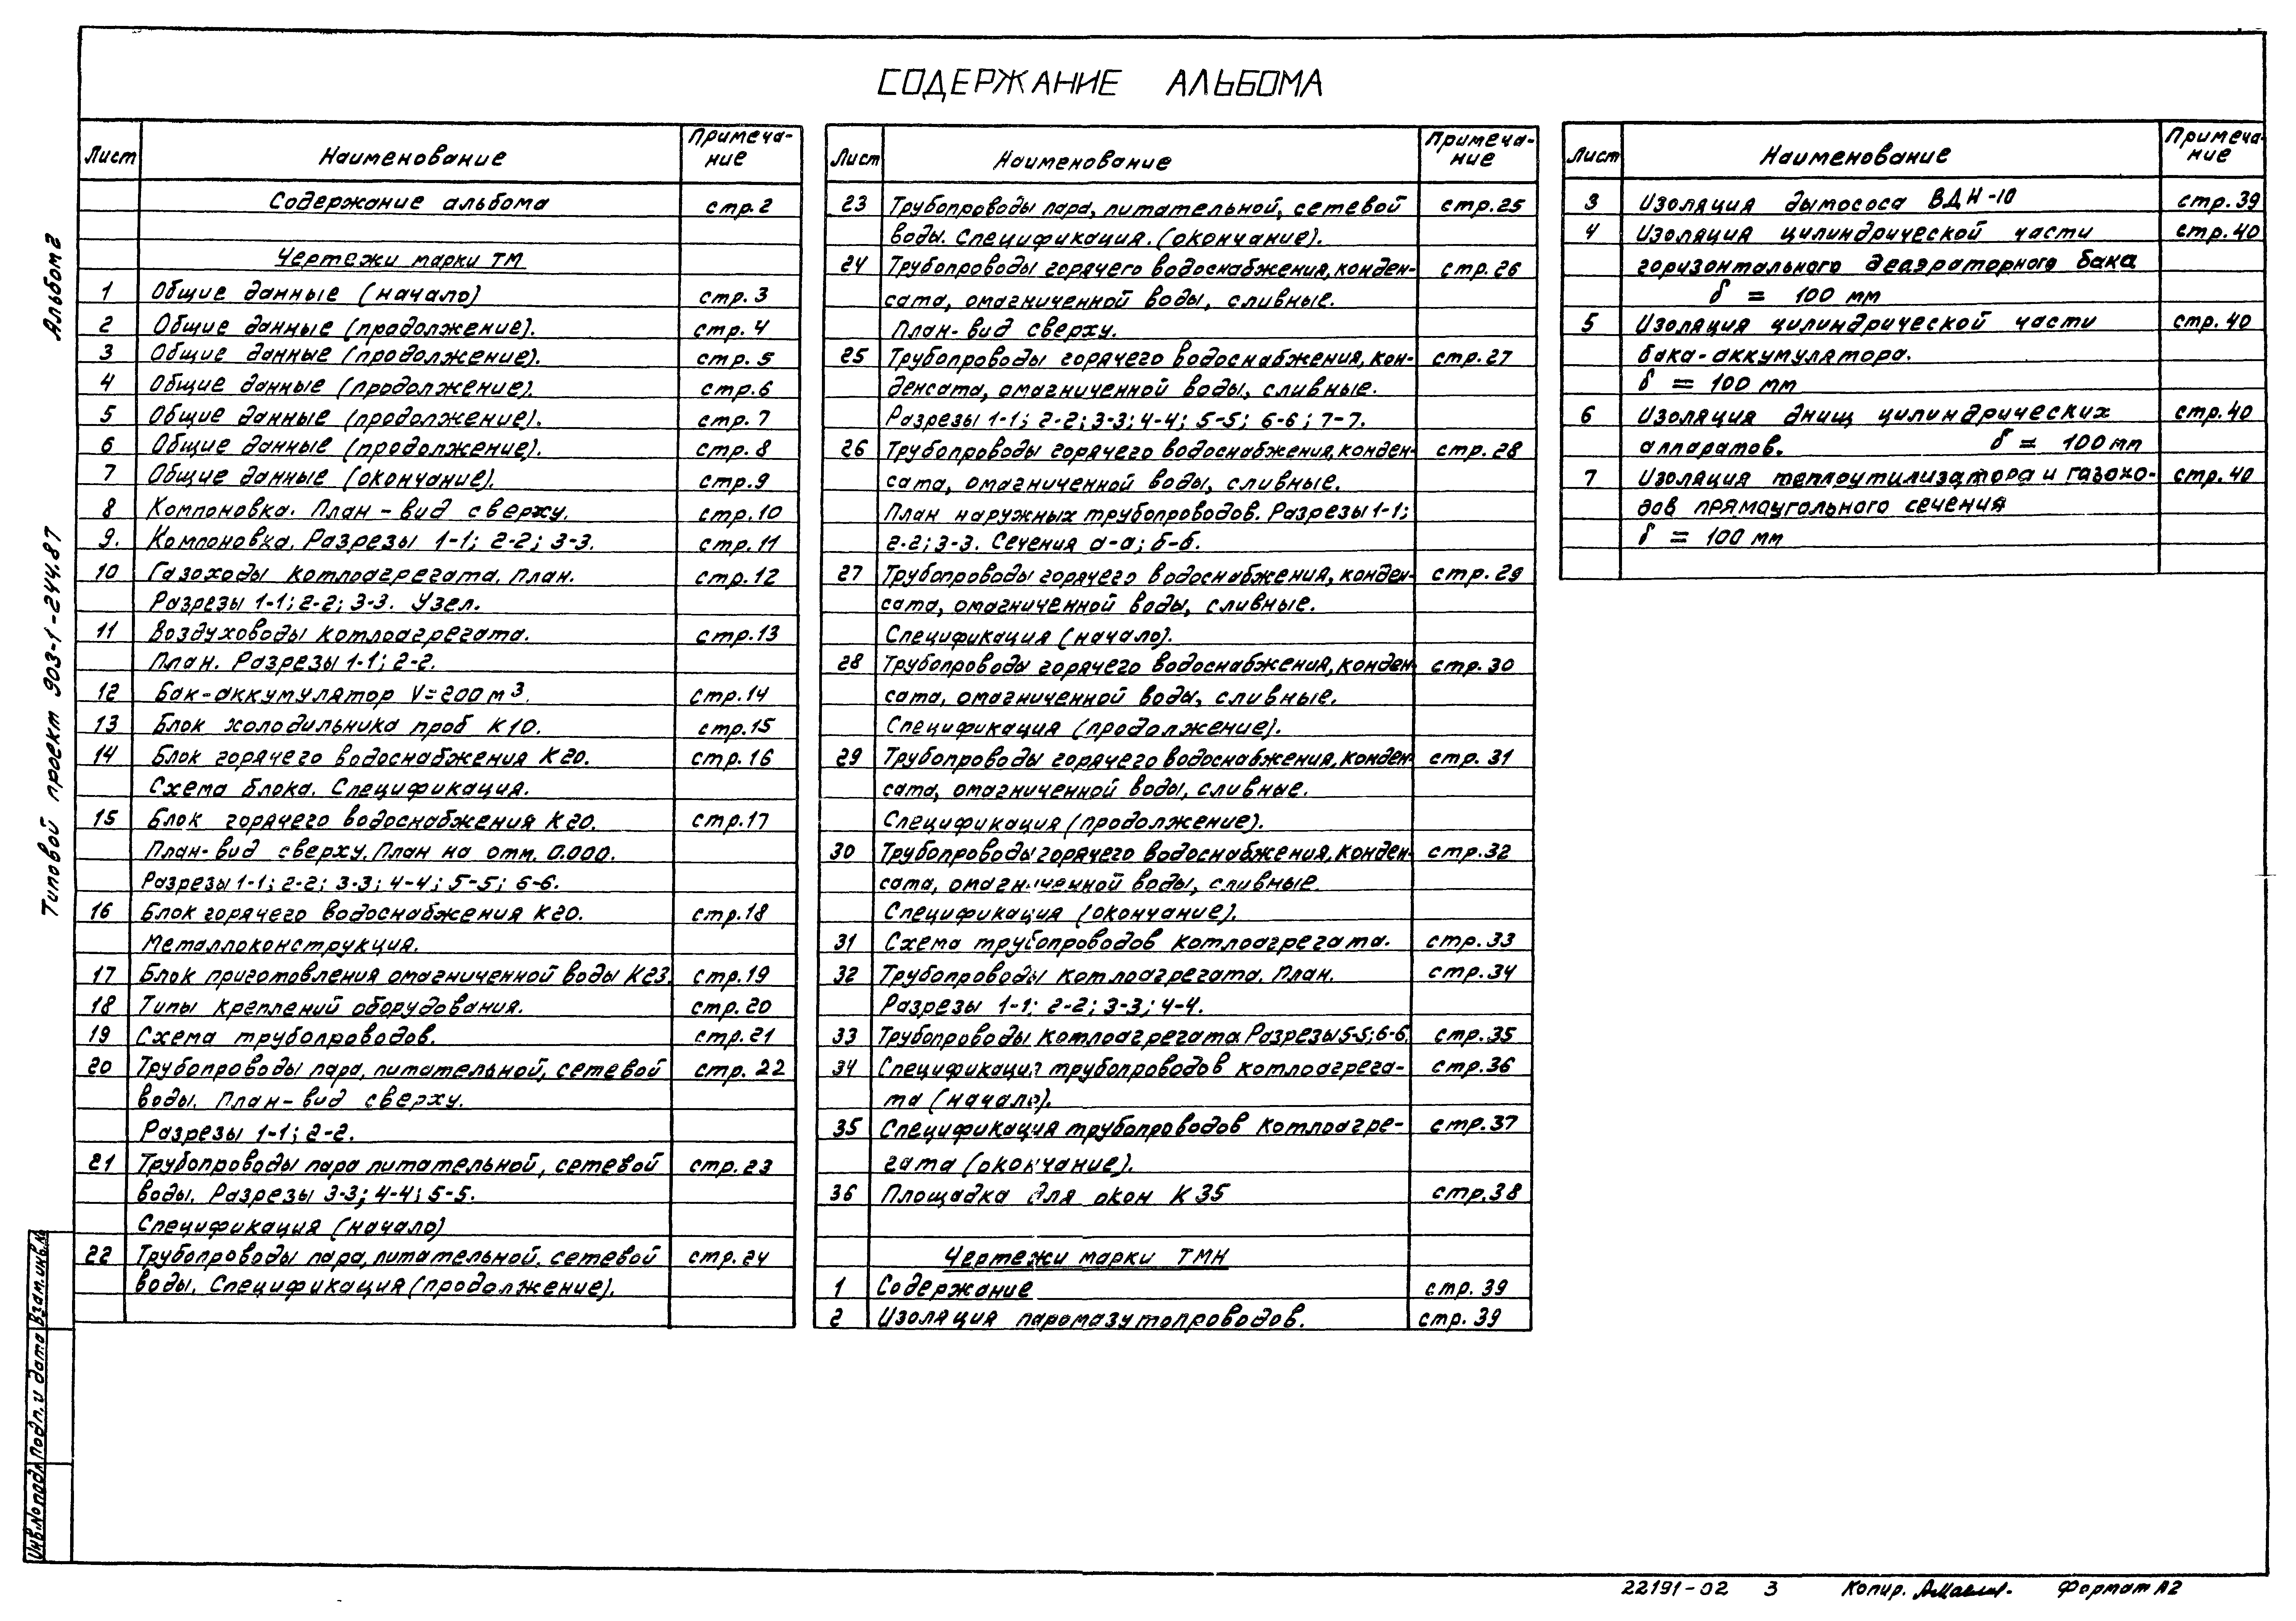 СОДЕРЖАНИЕ АЛЬБОМА
Лист Наименование Примеча-
ние
Содержание альбома стр.2
Чертежи марки ТМ
1 Общие данные (начало) стр.3
2 Общие данные (продолжение). стр.4
3 Общие данные (продолжение). стр.5
4 Общие данные (продолжение). стр.6
5 Общие данные (продолжение). стр.7
6 Общие данные (продолжение). стр.8
7 Общие данные (окончание). стр.9
8 Компоновка. План-вид сверху. стр.10
9. Компоновка. Разрезы 1-1; 2-2; 3-3. стр.11
10 Газоходы котлоагрегата. План. стр.12
Разрезы 1-1; 2-2; 3-3. Узел.
11 Воздуховоды котлоагрегата. стр.13
План. Разрезы 1-1; 2-2.
12 Бак-аккумулятор V=200м3. стр.14
13 Блок холодильника проб К10. стр.15
14 Блок горячего водоснабжения К20. стр.16
Схема блока. Спецификация.
15 Блок горячего водоснабжения К20. стр.17
План-вид сверху. План на отм. 0.000.
Разрезы 1-1; 2-2; 3-3; 4-4; 5-5; 6-6.
16 Блок горячего водоснабжения К20. стр.18
Металлоконструкция.
17 Блок приготовления омагниченной воды К23. стр.19
18 Типы креплений оборудования. стр.20
19 Схема трубопроводов. стр.21
20 Трубопроводы пара, питательной, сетевой стр. 22
воды. План-вид сверху.
Разрезы 1-1; 2-2.
21 Трубопроводы пара питательной, сетевой стр.23
воды. Разрезы 3-3; 4-4; 5-5.
Спецификация (начало)
22 Трубопроводы пара, питательной, сетевой стр.24
воды. Спецификация (продолжение).
Лист Наименование Примеча-
ние
23 Трубопроводы пара, питательной, сетевой стр.25
воды. Спецификация. (окончание).
24 Трубопроводы горячего водоснабжения, конден- стр.26
сата, омагниченной воды, сливные.
План-вид сверху.
25 Трубопроводы горячего водоснабжения, кон- стр.27
денсата, омагниченной воды, сливные.
Разрезы 1-1; 2-2; 3-3; 4-4; 5-5; 6-6; 7-7.
26 Трубопроводы горячего водоснабжения, конден- стр. 28
сата, омагниченной воды, сливные.
План наружных трубопроводов. Разрезы 1-1;
2-2; 3-3. Сечения а-а; б-б.
27 Трубопроводы горячего водоснабжения, конден- стр.29
сата, омагниченной воды, сливные.
Спецификация (начало).
28 Трубопроводы горячего водоснабжения, конден- стр.30
сата, омагниченной воды, сливные.
Спецификация (продолжение).
29 Трубопроводы горячего водоснабжения, конден- стр. 31
сата, омагниченной воды, сливные.
Спецификация (продолжение).
30 Трубопроводы горячего водоснабжения, конден- стр.32
сата, омагниченной воды, сливные.
Спецификация (окончание).
31 Схема трубопроводов котлоагрегата. стр.33
32 Трубопроводы котлоагрегата. План. стр.34
Разрезы 1-1; 2-2; 3-3; 4-4.
33 Трубопроводы котлоагрегата Разрезы 5-5; 6-6. стр.35
34 Спецификация трубопроводов котлоагрега- стр.36
та (начало).
35 Спецификация трубопроводов котлоагре- стр.37
гата (окончание).
36 Площадка для окон К35 стр.38
Чертежи марки ТМН
1 Содержание стр. 39
2 Изоляция паромазутопроводов. стр. 39
Лист Наименование Примеча-
ние
3 Изоляция дымососа ВДН-10 стр.39
4 Изоляция цилиндрической части стр.40
горизонтального деаэраторного бака
δ = 100 мм
5 Изоляция цилиндрической части стр.40
бака-аккумулятора.
δ = 100 мм
6 Изоляция днищ цилиндрических стр.40
аппаратов. δ = 100мм
7 Изоляция теплоутилизатора и газохо- стр.40
дов прямоугольного сечения
δ = 100 мм
Типовой проект 903-1-244.87 Альбом 2
Инв.№ подл. Подп. и дата Взам.инв.№
22191-02 3 Копир. Формат А2